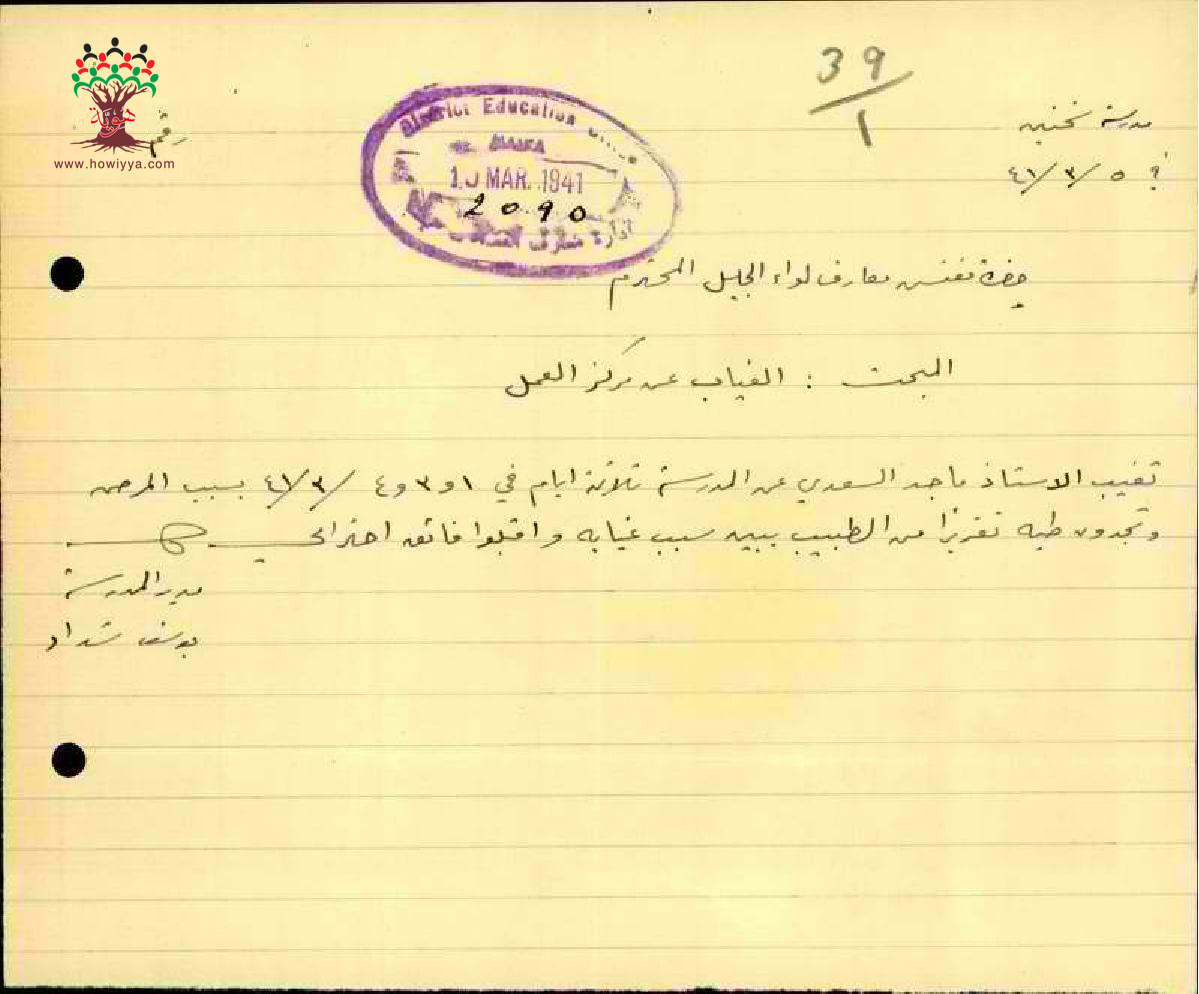 39
1
مدرسة سخنين
في ٥/٣/٤١
رقم
هوية
www.howiyya.com
District Education Office
HAIFA
10 MAR. 1941
2090
ادارة معارف
حضرة مفتش معارف لواء الجليل المحترم
المبحث : الغياب عن مركز العمل
تغيب الاستاذ ماجد السعدي عن المدرسة ثلاثة ايام في ١ و ٣ و ٤ /٣/ ٤١ بسبب المرض
وتجدون طيه تقريرًا من الطبيب يبين سبب غيابه واقبلوا فائق احترامي
مدير المدرسة
يوسف شداد